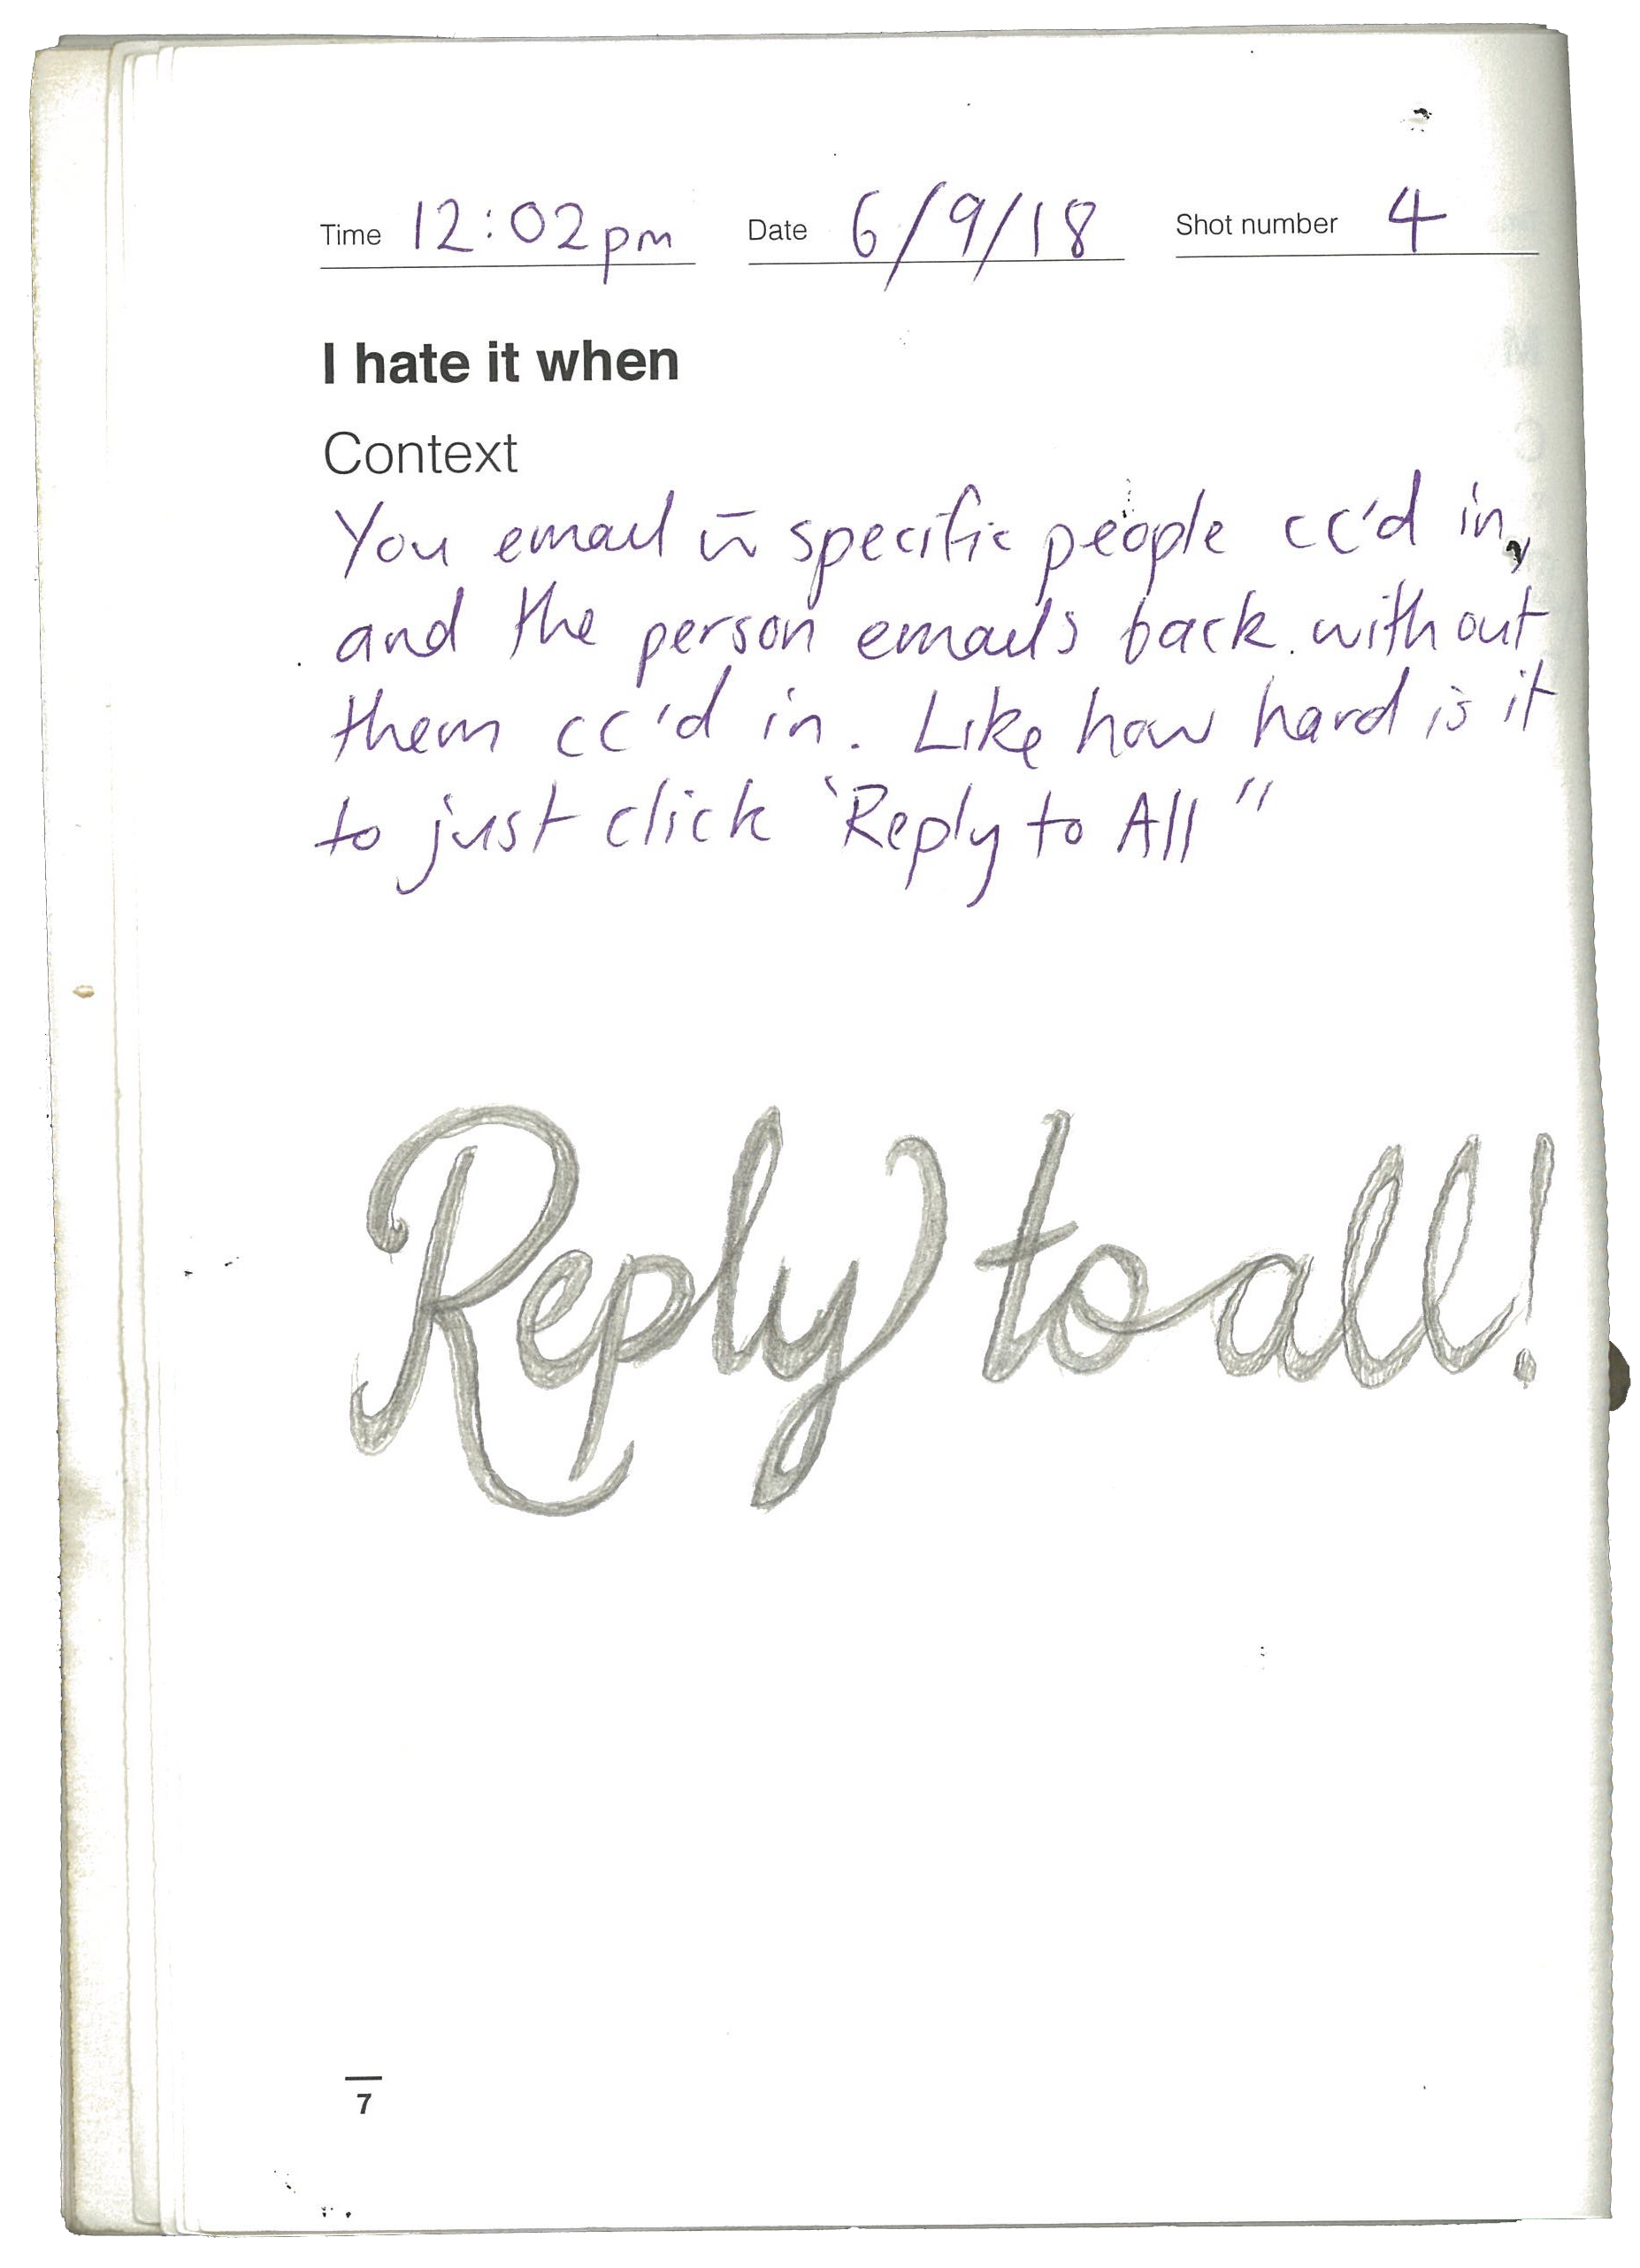 Time 12:02pm Date 6/9/18 Shot number 4
I hate it when
Context
You email w̄ specific people cc'd in,
and the person emails back without
them cc'd in. Like how hard is it
to just click "Reply to All"
Reply to all!
7